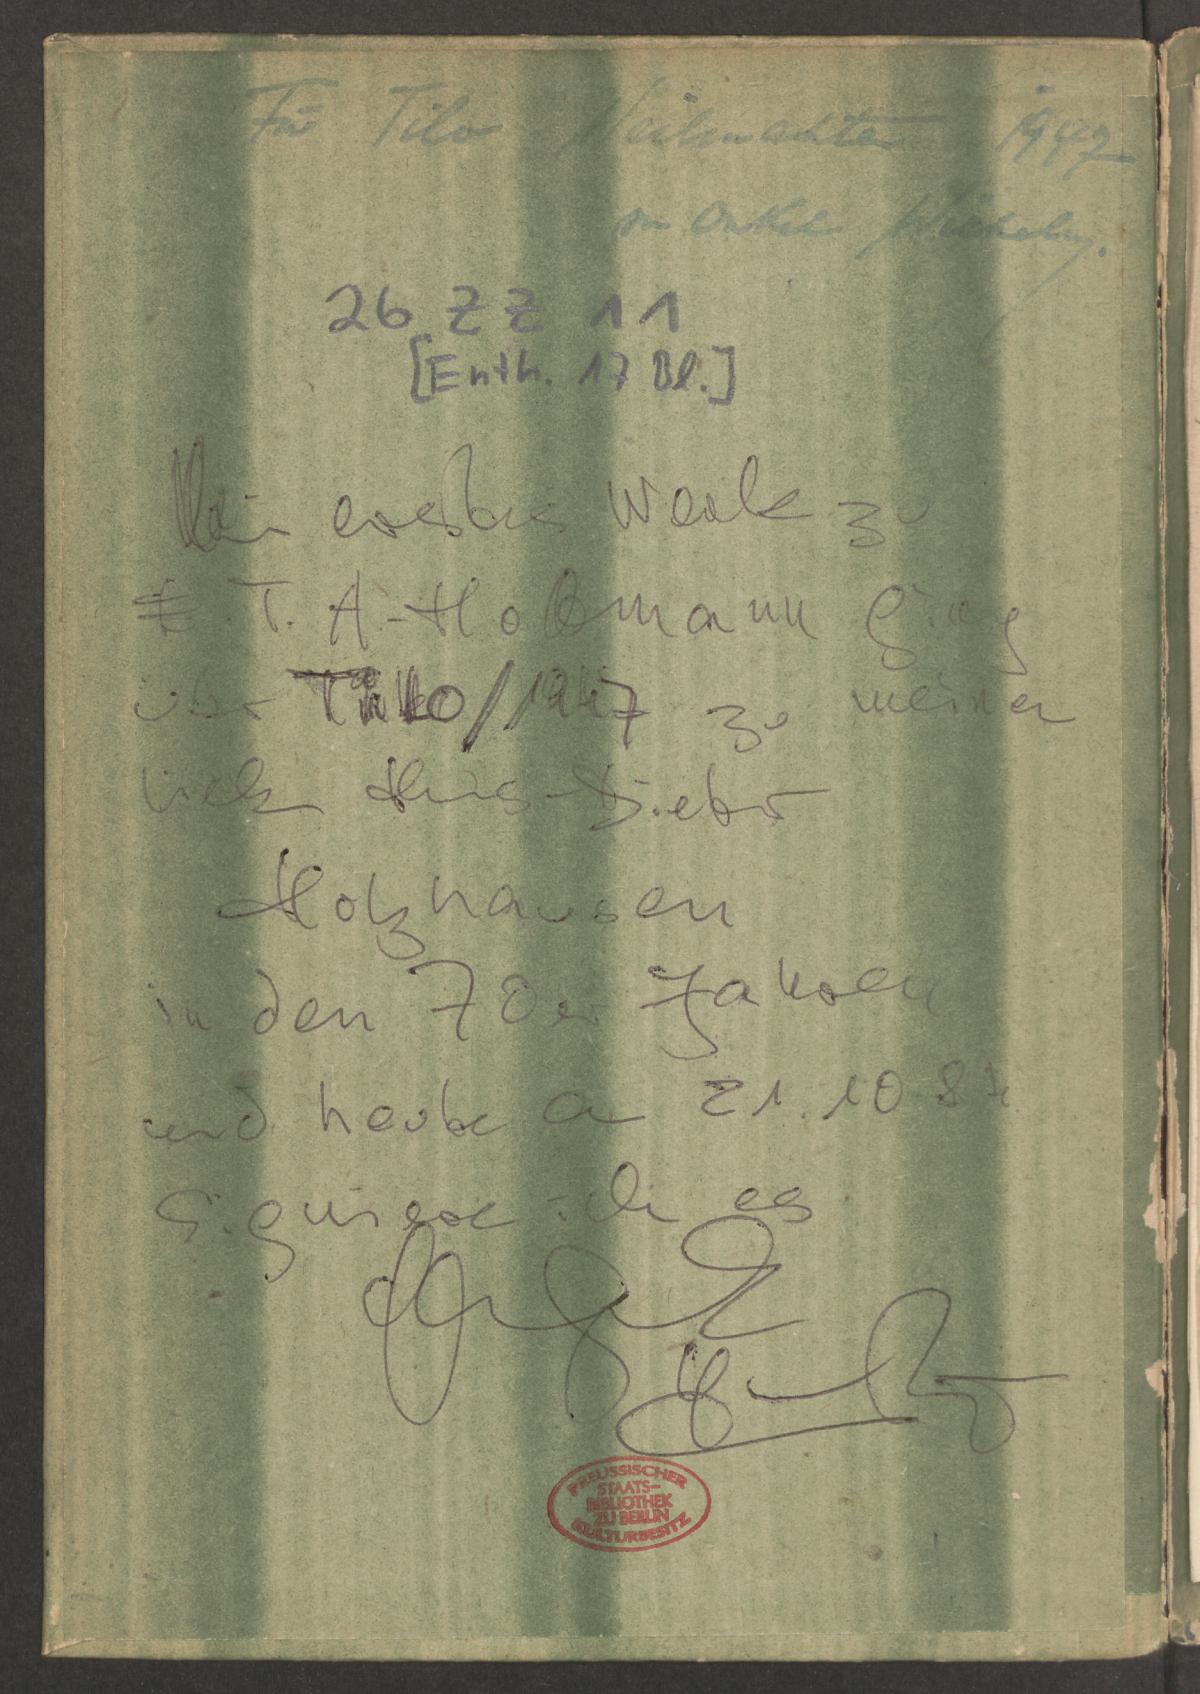 Für Tilo Weihnachten 1947
von Onkel Wilhelm.
26 ZZ 11
[Enth. 17 Bl.]
Mein erstes Werk zu
E. T. A. Hoffmann ging
über Tilo/1947 zu meiner
Hans-Dieter
Holzhausen
in den 70er Jahren
und heute am 21.10.87
signiere ich es
PREUSSISCHER
STAATS-
BIBLIOTHEK
ZU BERLIN
KULTURBESITZ